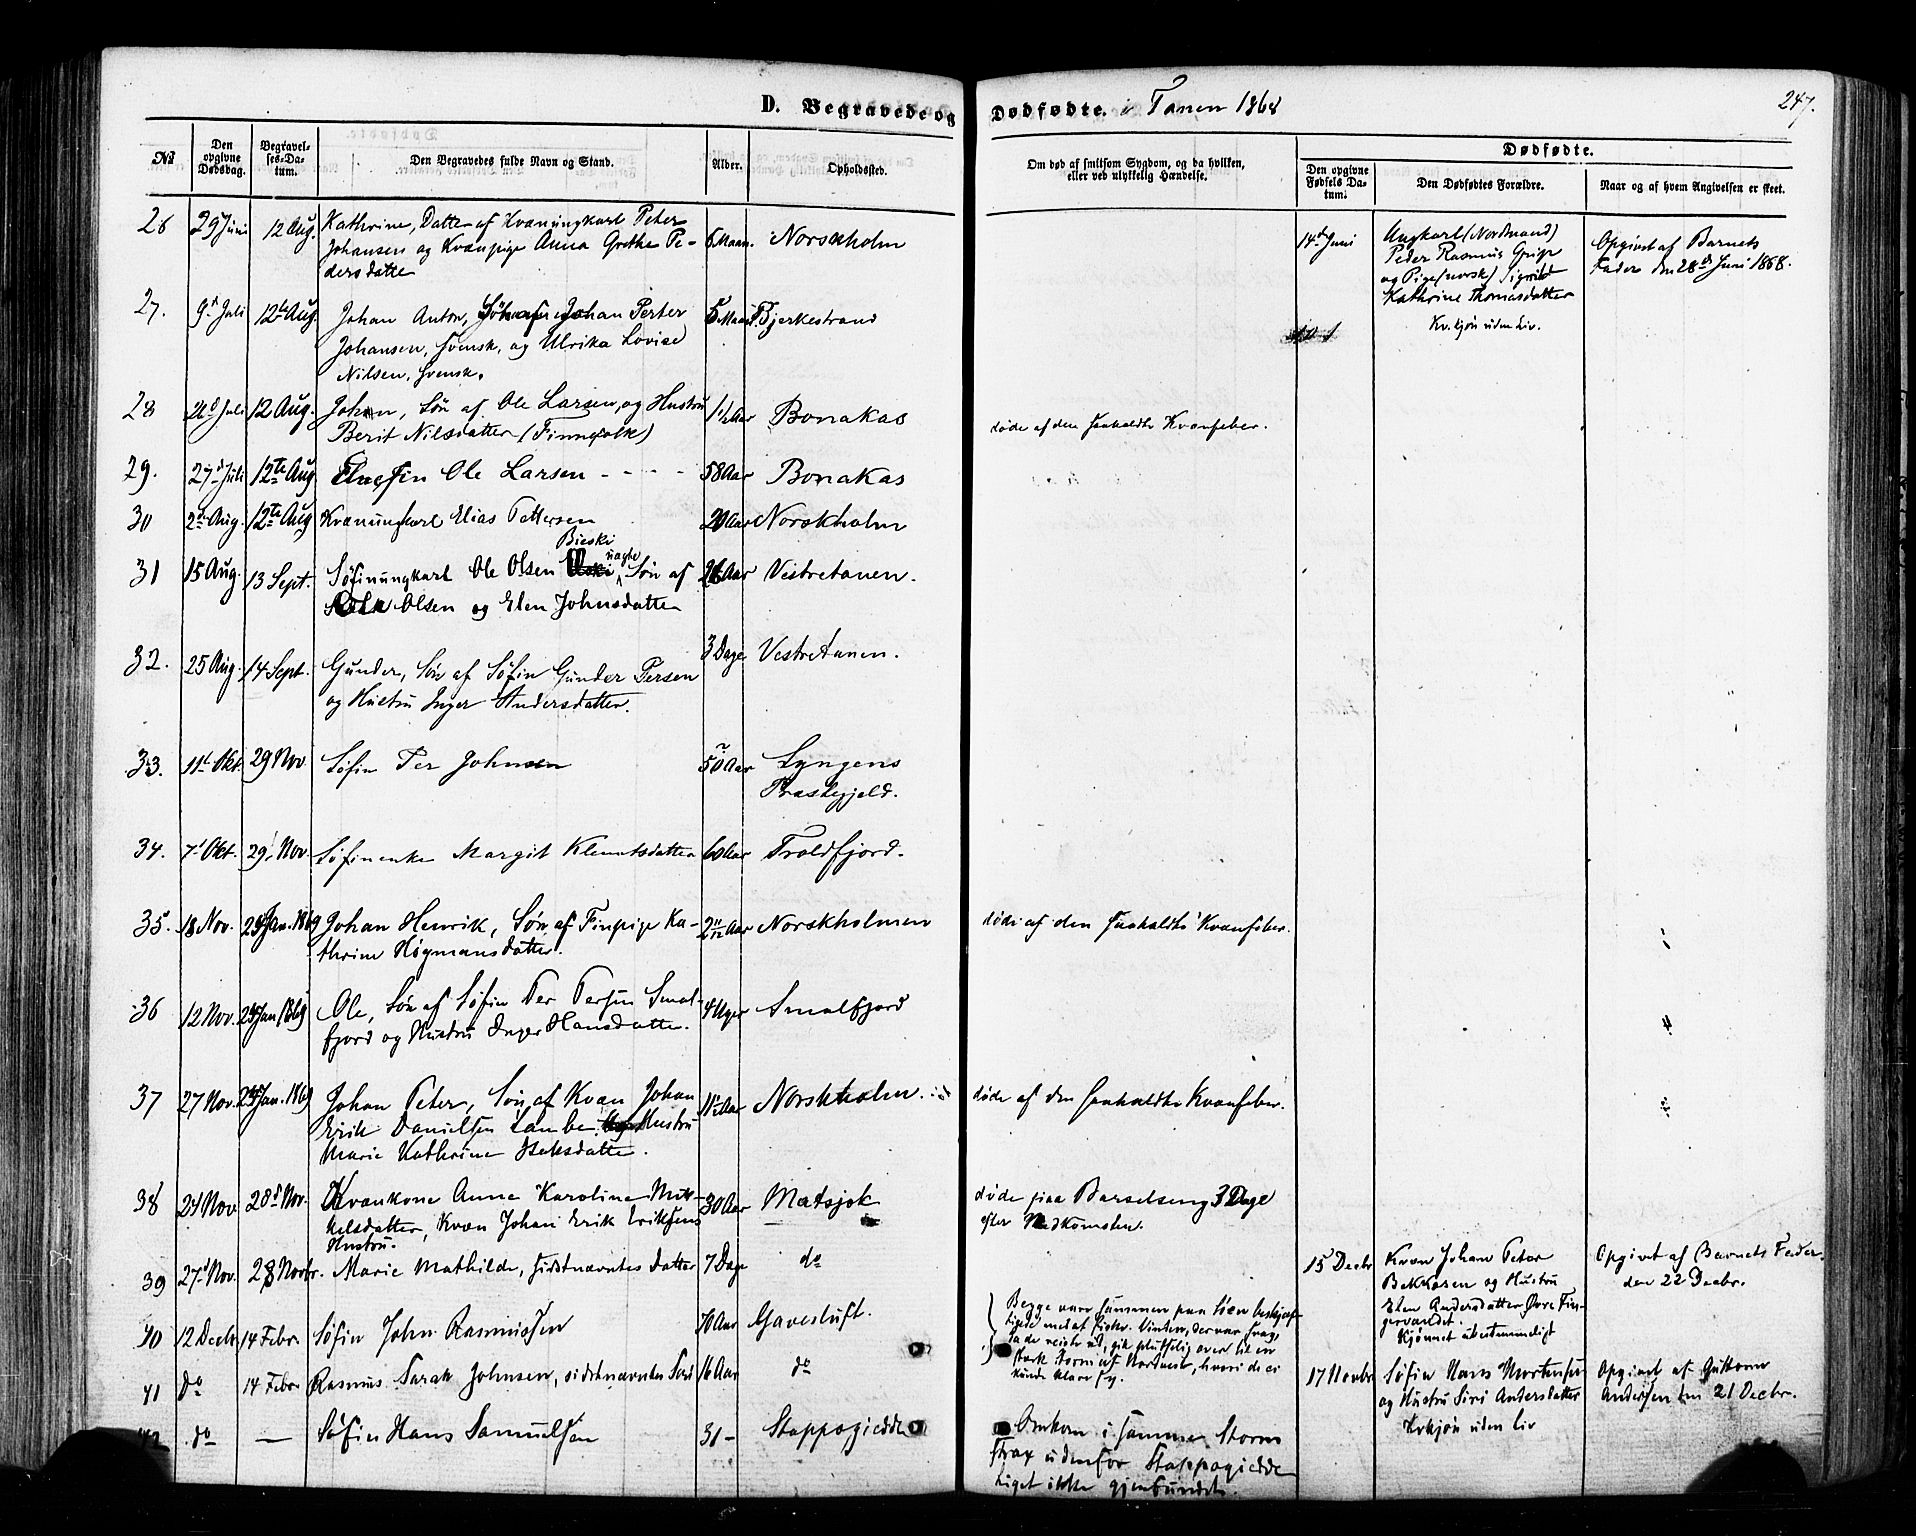 D. Begravede og Dødfødte. i Tanen 1868
247.
№
Den opgivne Dødsdag.
Begravel-
ses-Da-
tum.
Den Begravedes fulde Navn og Stand.
Alder.
Opholdssted.
Om død af smitsom Sygdom, og da hvilken,
eller ved ulykkelig Hændelse.
Dødfødte.
Den opgivne
Fødsels Da-
tum:
Den Dødfødtes Forældre.
Naar og af hvem Angivelsen er skeet.
26 29 Juni 12 Aug. Kathrine, Datter af Kvænungkarl Peter
Johansen og Kvænpige Anna Grethe Pe-
dersdatter
6 Maan. Norskholm
14d Juni
Ungkarl (Nordmand)
Peder Rasmus
og Pige (norsk) Sigrid
Kathrine Thomasdatter
Kv.kjøn uden Liv.
Opgivet af Barnets
Fader den 28d Juni 1868.
27. 9d Juli 12te Aug. Johan Anton, Søn af Johan Perter
Johansen, svensk, og Ulrika Lovise
Nilsen, svensk.
5 Maan. Bjerkestrand
28 Juli 12 Aug. Johan, Søn af Ole Larsen, og Hustru
Berit Nilsdatter (Finnefolk)
1½ Aar Bonakas
døde af den saakaldte Kvænfeber.
29. 27d Juli 12te Aug. Ole Larsen - - - -
58 Aar Bonakas
30 2den Aug. 12te Aug Kvænungkarl Elias Pettersen
20 Aar Norskholm
31 15 Aug. 13 Sept. Søfinungkarl Ole Olsen Bieski uægte Søn af
Olsen og Elen Johnsdatter
Aar Vestretanen.
32. 25 Aug. 14 Sept. Gunder, Søn af Søfin Gunder Persen
og Hustru Inger Andersdatter.
3 Dage Vestretanen.
33. 11d Okt. 29 Nov. Søfin Per Johnsen
50 Aar Lyngens
Præstegjeld.
34. 7d Okt. 29d Nov. Søfinenke Margit Klemetsdatter
60 Aar Troldfjord.
35. 18 Nov. 24 Jan. 1869 Johan Henrik, Søn af Finpige Ka-
thrine Høgmansdatter.
2 11/12 Aar Norskholmen
døde af den saakaldte Kvænfeber.
36 12 Nov. 24 Jan 1869 Ole, Søn af Søfin Per Persen Smal-
fjord og Hustru Inger Hansdatter.
4 Uger Smalfjord
37 27 Nov. 24 Jan. 1869 Johan Peter, Søn af Kvæn Johan
Erik Danielsen Lambe. og Hustru
Marie Kathrine Isaksdatter.
Aar Norskholm.
døde af den saakaldte Kvænfeber.
38 24 Nov. 28d Nov. Kvænkone Anna Karolina Mik-
kelsdatter, Kvæn Johan Erik Eriksens
Hustru.
30 Aar Matsjok
døde paa Barselseng 3 Dage
efter Nedkomsten.
39 27d Nov. 28 Novbr. Marie Mathilde, sidstnævntes datter
7 Dage do
15 Decbr
Kvæn Johan Peter
Bekkasen og Hustru
Elen Andersdatter, Øvre Fin-
gervandet.
Kjønnet ubestemmeligt
Opgivet af Barnets Fader.
den 22 Decbr.
40 12 Decbr 14 Febr. Søfin John Rasmussen
70 Aar Gavesluft.
Begge vare sammen paa Søen beskjæf-
tigede med at fiske. Vinden, der var svag,
da de reiste ud, gik pludselig over til en
stærk Storm af Nordvest, hvori de ei
kunde klare sig.
41 do 14 Febr Rasmus Sarak Johnsen, sidstnævntes Søn
16 Aar do
17 Novbr
Søfin Hans Mortensen
og Hustru Siri Andersdatter
Kvkjøn uden Liv
Opgivet af Guttorm
Andersen den 21 Decbr.
42 do — Søfin Hans Samuelsen
31 – Stappogiedde
Omkom i samme Storm
strax udenfor Stappogiedde
Liget ikke gjenfundet.